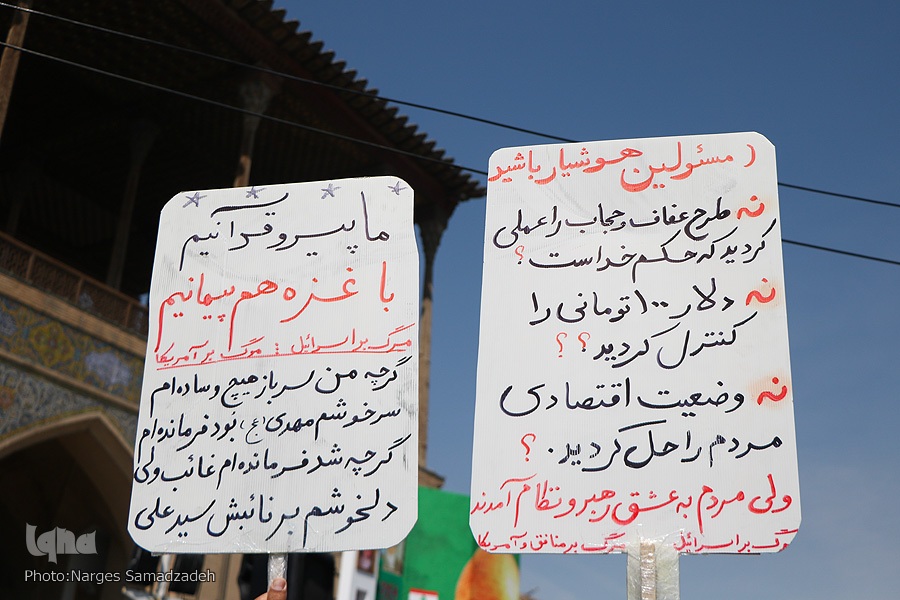 ما پیرو قرآنیم
با غزه هم پیمانیم
مرگ بر اسرائیل : مرگ بر آمریکا
گرچه من سرباز هیچ و ساده ام
سرخوشم مهدی (عج) بود فرمانده ام
گرچه شد فرمانده ام غائب ولی
دلخوشم بر نائبش سید علی
( مسئولین هوشیار باشید
نه طرح عفاف و حجاب را عملی
کردید که حکم خداست ؟
نه دلار ۱۰۰ تومانی را
کنترل کردید ؟ ؟
نه وضعیت اقتصادی
مردم را حل کردید . ؟
ولی مردم به عشق رهبر و نظام آمدند
مرگ بر اسرائیل مرگ بر منافق و آمریکا
iqna
Photo:Narges Samadzadeh